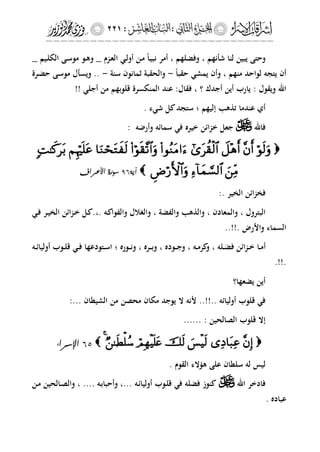 إشراق الإنسان : الباب الثاني : ٢٢١
وحتى يبين لنا شأنهم ، وفضلهم ، أمر نبياً من أولي العزم _ وهو موسى الكليم _
أن يتجه لواحد منهم ، وأن يمشي حقباً والحقبة ثمانون سنة .. ويسأل موسى حضرة
الله ويقول : يارب أين أجدك ؟ ، فقال: عند المنكسرة قلوبهم من أجلي !!
أي عندما تذهب إليهم ؛ ستجد كل شيء .
فالله جعل خزائن خيره في سمائه وأرضه :
﴿ وَلَوْ أَنَّ أَهْلَ ٱلْقُرَىٰٓ ءَامَنُوا۟ وَٱتَّقَوْا۟ لَفَتَحْنَا عَلَيْهِم بَرَكَـٰتٍ
مِّنَ ٱلسَّمَآءِ وَٱلْأَرْضِ ﴾ آية٩٦ سورة الأعراف
فخزائن الخير .:
البترول ، والمعادن ، والذهب والفضة ، والغلال والفواكه ..،.كل خزائن الخير في
السماء والأرض .!!..
أما خزائن فضله ، وكرمه ، وجوده ، وبره ، ونوره ؛ استودعها في قلوب أوليائه
.!!.
أين يضعها؟
في قلوب أوليائه ..!!.. لأنه لا يوجد مكان محصن من الشيطان ...:
إلا قلوب الصالحين : ......
﴿ إِنَّ عِبَادِى لَيْسَ لَكَ عَلَيْهِمْ سُلْطَـٰنٌ ﴾ ٦٥ الإسراء
ليس له سلطان على هؤلاء القوم .
فادخر الله كنوز فضله في قلوب أوليائه ...، وأحبابه .... ، والصالحين من
عباده .